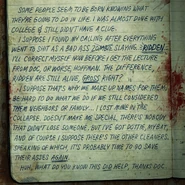 SOME PEOPLE SEEM TO BE BORN KNOWING WHAT
THEY'RE GOING TO DO IN LIFE. I WAS ALMOST DONE WITH
COLLEGE & STILL DIDN'T HAVE A CLUE.
I SUPPOSE I FOUND MY CALLING AFTER EVERYTHING
WENT TO SHIT AS A BAD ASS ZOMBIE SLAYING... RIDDEN.
I'LL CORRECT MYSELF NOW BEFORE I GET THE LECTURE
FROM DOC, OR WORSE, HOFFMAN. THE DIFFERENCE,
RIDDEN ARE STILL ALIVE, GROSS RIGHT?
I SUPPOSE THAT'S WHY WE MAKE UP NAMES FOR THEM.
BE HARD TO DO WHAT WE DO IF WE STILL CONSIDERED
THEM NEIGHBORS OR FAMILY... I LOST MINE IN THE
COLLAPSE. DOESN'T MAKE ME SPECIAL, THERE'S NOBODY
THAT DIDN'T LOSE SOMEONE, BUT I'VE GOT DOTTIE,
AND OF COURSE I SUPPOSE THERE'S THE OTHER CLEANERS.
SPEAKING OF WHICH, IT'S PROBABLY TIME TO GO SAVE
THEIR ASSES AGAIN.
HUH, WHAT DO YOU KNOW THIS DID HELP, THANKS DOC.